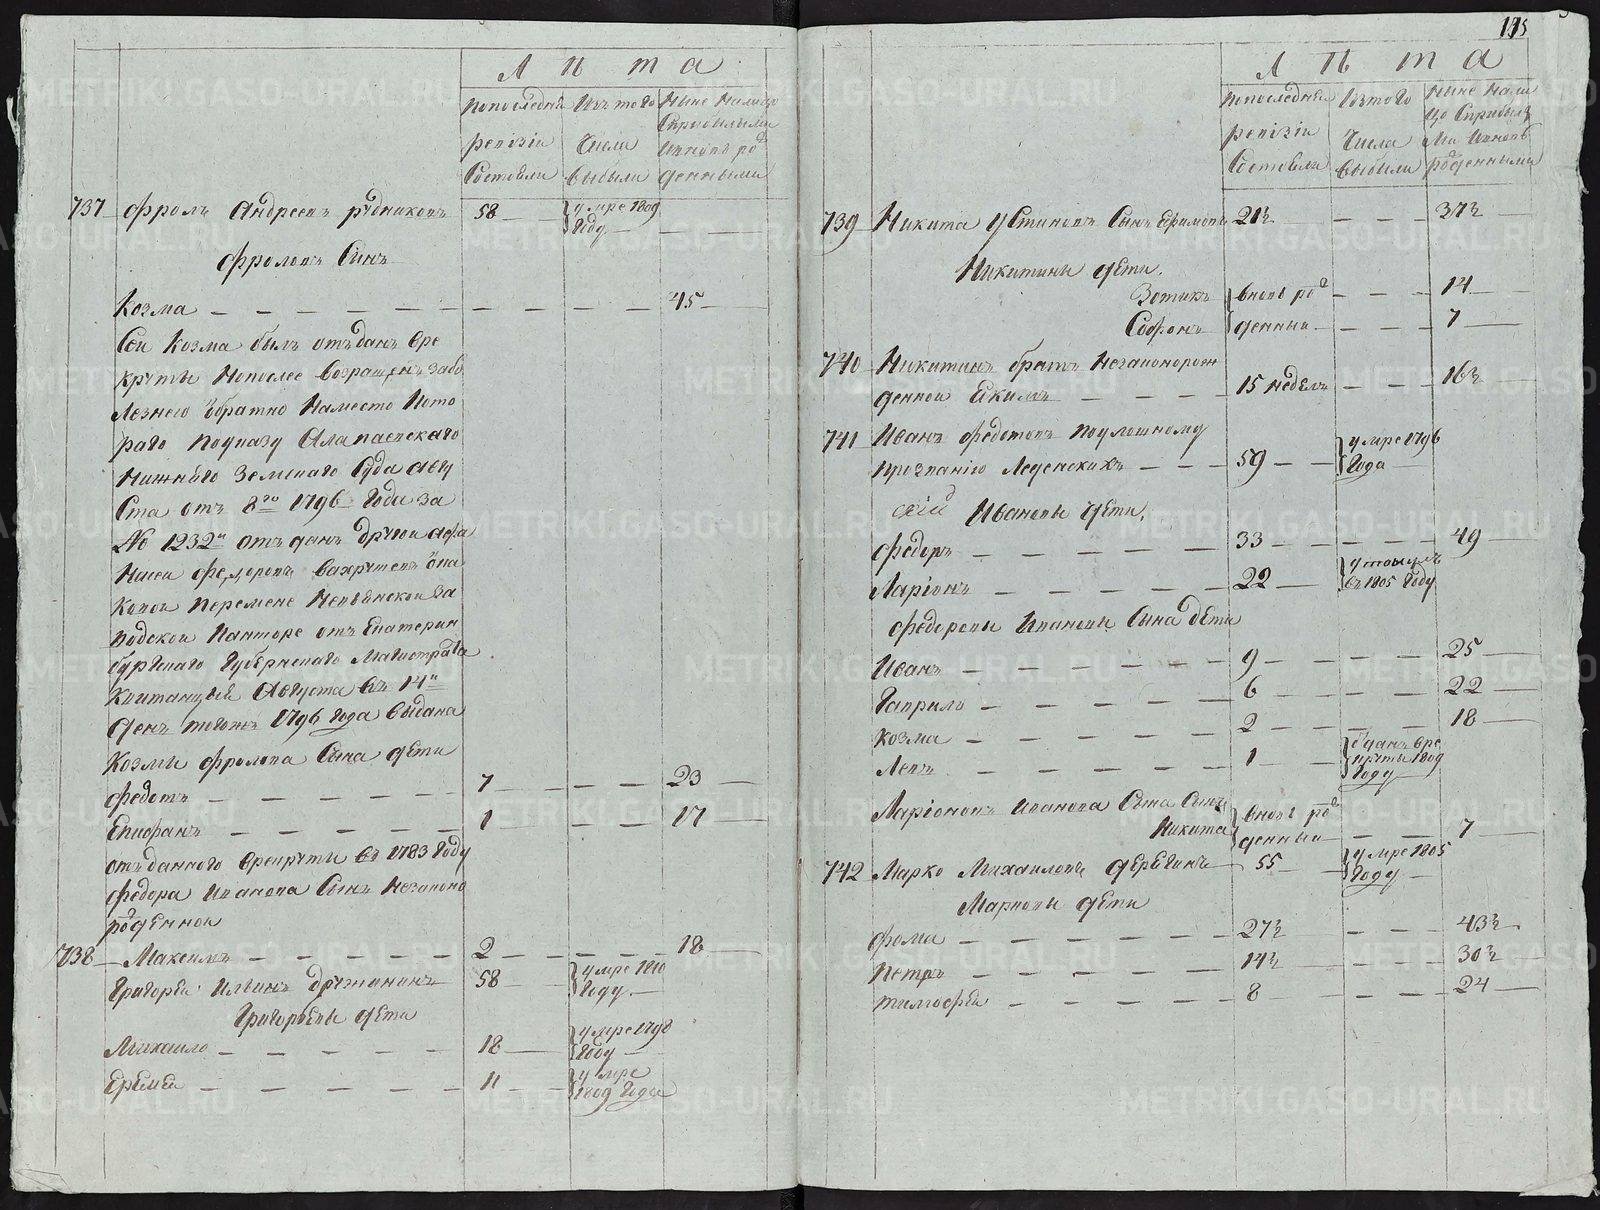 Лѣта
Попоследней
ревизіи
Состояли
Изъ того
числа
выбыли
Ныне Налицо
Сприбылыми
Ивновь ро
денными
737 Фролъ Андреевъ рудниковъ 58 умре 1809 Году
Фроловъ Сынъ
Козма 45
Сеи Козма былъ отъданъ вре
круты Нопосле возращенъ забо
лезнею обратно Наместо Кото
раго Поуказу Алапаевскаго
Нижнего Земскаго Суда Авгу
Ста отъ 8го 1796 Года за
№ 1232м отъданъ другои Афа
Насеи Федоровъ Вахрушевъ
Коеи Перемене Невьянскои За
водскои Канторе отъ Екатерин
бургскаго Губернскаго Магистрата
Квитанцыя Августа въ 14й
День тогожъ 1796 Года выдана
Козмы Фролова Сына дети
Федотъ 7 23
Епифанъ 1 17
отъданного врекруты въ 1783 Году
Федора Иванова Сынъ Незаконо
рожденнои
738 Максимъ 2 18
Григореи Ильинъ дружининъ 58 умре 1810 Году
Григорьевы дети
Михаило 18 умре 1798 Году
Еремеи 11 умре 1809 Года
115
Лѣта
Попоследней
ревизіи
Состояли
Изтого
Числа
выбыли
Ныне Нали
цо Сприбыл
ми Ивновь
рожденными
739 Никита Устиновъ Сынъ Ефимовъ 21½ 37½
Никитины дети.
Зотикъ вновь ро 14
Софонъ денныи 7
740 Никитинъ братъ Незаконорож
деннои Екимъ 15 недель 16½
741 Иванъ Федотовъ
признанію Леденскихъ 59 умре 1796 Года
Ивановы дети.
Федоръ 33 49
Ларіонъ 22 утонулъ въ 1805 Году
Федоровы Иванова Сына дети
Иванъ 9 25
Гаврило 6 22
Козма 2 18
Левъ 1 оданъ вре круты 1809 Году
Ларіоновъ Иванова Сына Сынъ
Никита вновь ро денныи 7
742 Марко Михаиловъ дерягинъ 55 умре 1805 Году
Марковы дети
Фома 27½ 43½
Петръ 14½ 30½
тимофеи 8 24
METRIKI.GASO-URAL.RU